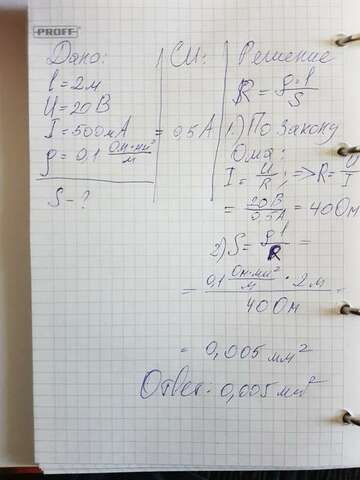 PROFF
Дано:
l = 2м
U = 20В
I = 500мА
ρ = 0,1 Ом·мм²/м
S - ?
СИ:
= 0,5 А
Решение
R = ρ·l/S
1.) По закону
Ома:
I = U/R; => R = U/I
= 20В/0,5А = 40 Ом
2) S = ρl/R =
= 0,1 Ом·мм²/м · 2м / 40 Ом
= 0,005 мм²
Ответ: 0,005 мм²